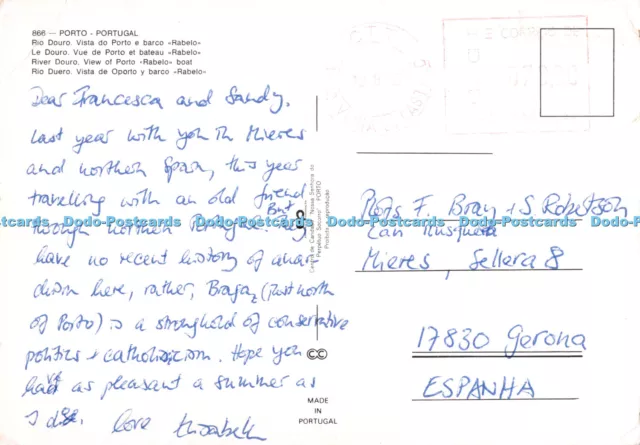 866 — PORTO - PORTUGAL
Rio Douro. Vista do Porto e barco «Rabelo»
Le Douro. Vue de Porto et bateau «Rabelo»
River Douro. View of Porto «Rabelo» boat
Rio Duero. Vista de Oporto y barco «Rabelo»
Dear Francesca and Sandy,
Last year with you in Mieres
and northern Spain, this year
travelling with an old friend
through northern But they
have no recent history of anar-
chism here, rather, Braga, (just north
of Porto) is a stronghold of conservative
politics + catholicism. Hope you
have as pleasant a summer as
I do. Love Elisabeth
PORTO
MADE
IN
PORTUGAL
CORREIOS
F. Bray + S. Robertson
Can
Mieres, Sellera 8
17830 Gerona
ESPANHA
Dodo-Postcards Dodo-Postcards Dodo-Postcards Dodo-Postcards
Dodo-Postcards Dodo-Postcards Dodo-Postcards Dodo-Postcards